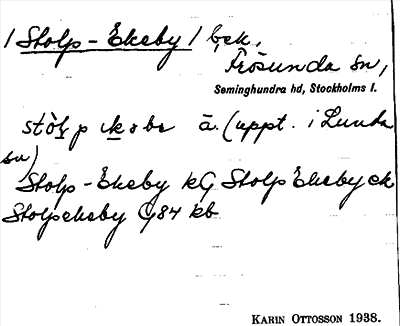 / Stolp - Ekeby / bek,
Frösunda sn,
Seminghundra hd, Stockholms l.
ā. (uppt. i Lunda
sn)
Stolp - Ekeby kG Stolp Ekeby ek
Stolpekeby G84 kb
KARIN OTTOSSON 1938.